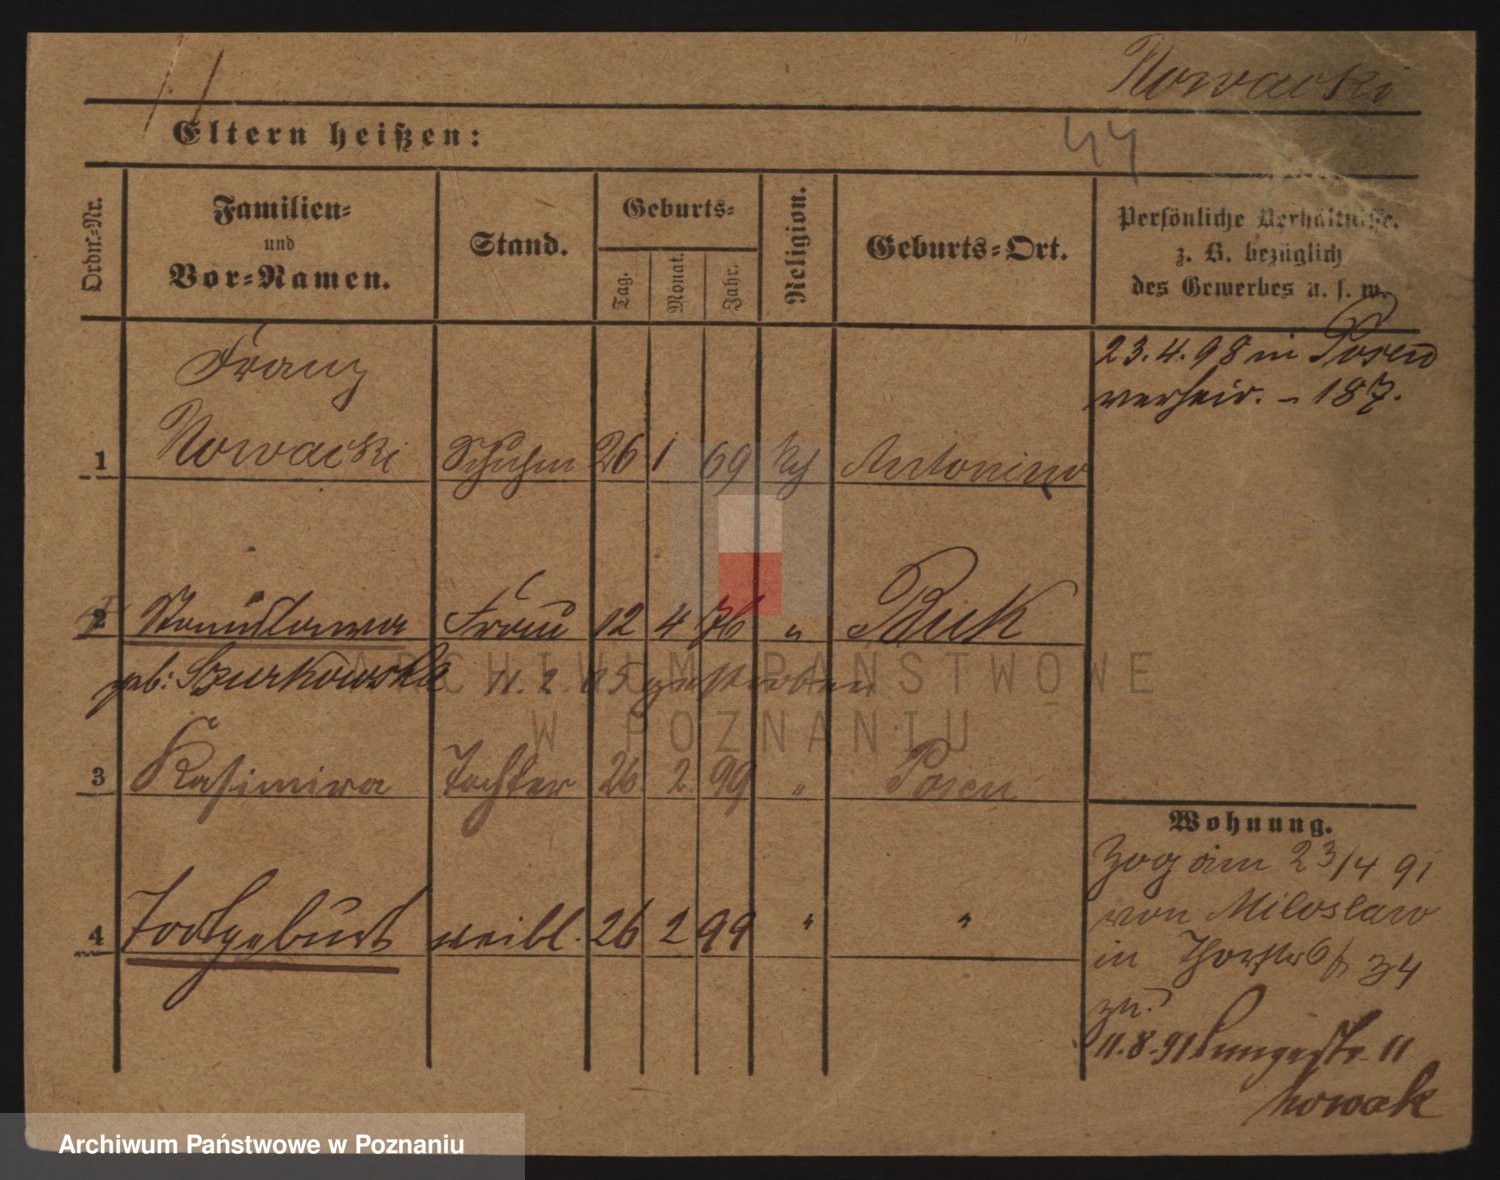 Nowacki
Eltern heißen:
44
Ordn.-Nr.
Familien-
und
Vor-Namen.
Stand.
Geburts-
Tag.
Monat.
Jahr.
Religion.
Geburts-Ort.
Persönliche Verhältnisse,
z. B. bezüglich
des Gewerbes u. s. w.
23.4.98 in Posen
verheir. - 187.
Franz
1 Nowacki Schuhm 26 1 69 kth Antonino
2 Stanislawa Frau 12 4 76 " Buk
geb: Szurkowska 11. 2. 05 gestorben
3 Kasimira Tochter 26. 2. 99 " Posen
4 Todtgeburt weibl. 26 2 99 " "
Wohnung.
Zog am 23/4 91
von Miloslaw
in Thorstr 34
zu.
11.8.91 11
Nowak
ARCHIWUM PAŃSTWOWE
W POZNANIU
Archiwum Państwowe w Poznaniu